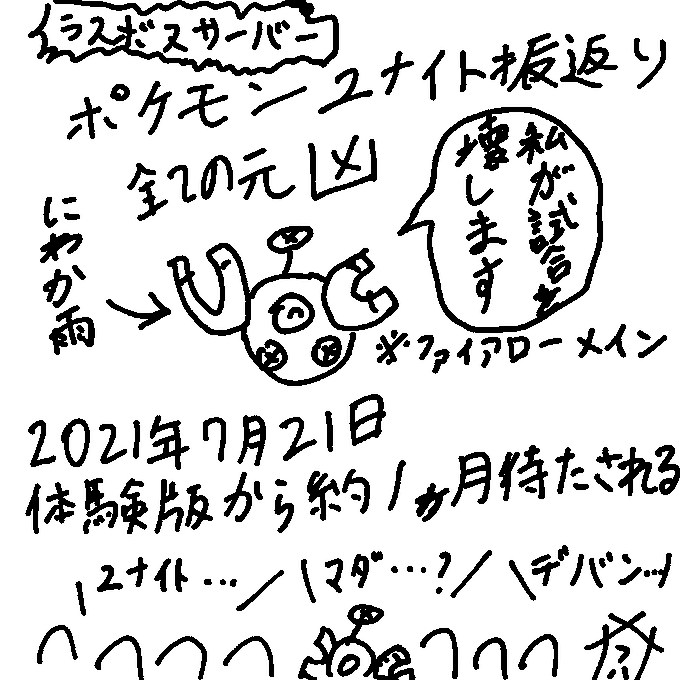 イラスボスサーバー
ポケモンユナイト振返り
全ての元凶
私が試合を
壊します
にわか雨
※ファイアローメイン
2021年7月21日
体験版から約1ヵ月待たされる
\ユナイト…/
\マダ…?/
\デバン…/